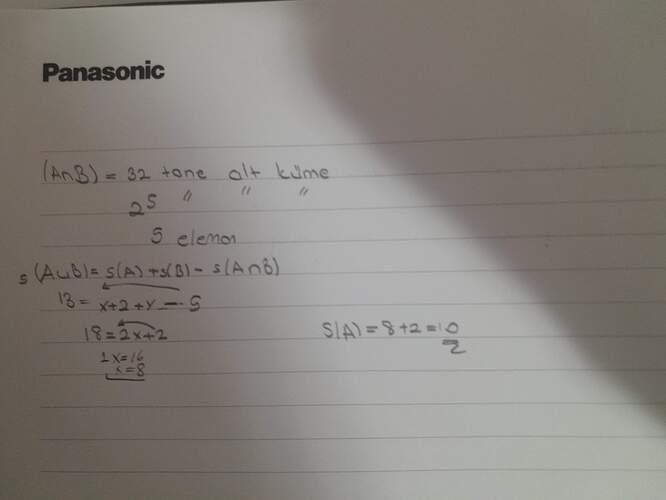 Panasonic
(A∩B) = 32 tane alt küme
2⁵ " " "
5 eleman
s(A∪B) = s(A) + s(B) - s(A∩B)
13 = x+2+x - 5
18 = 2x+2
2x=16
x=8
S(A) = 8+2 = 10